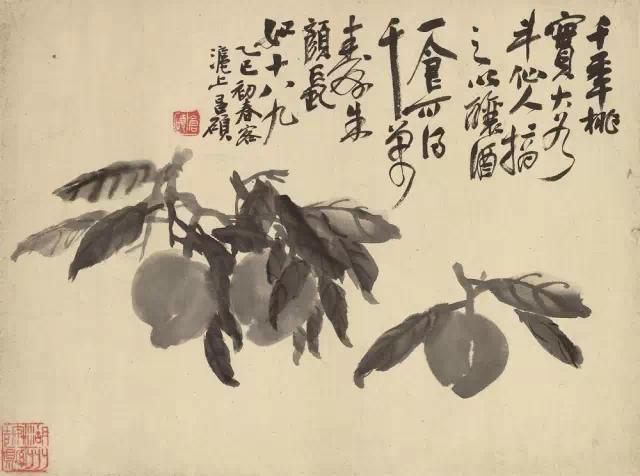 千年桃
實大
斗仙人摘
之以釀酒
一食可得
千萬
壽朱
顏長
如十八九
乙巳初春客
滬上昌碩
倉碩
湖州安吉縣